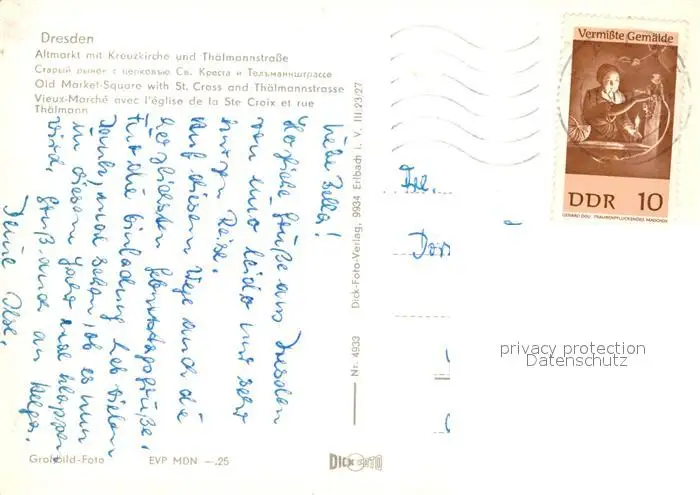 Dresden
Altmarkt mit Kreuzkirche und Thälmannstraße
Старый рынек с церковью Св. Креста и Тельманнштрассе
Old Market-Square with St. Cross and Thälmannstrasse
Vieux-Marché avec l'église de la Ste Croix et rue
Thälmann
Liebe Bella!
Herzliche Grüße aus Dresden
von einer leider nur sehr
kurzen Reise.
Auf diesem Wege auch die
herzlichsten Geburtstagsgrüße.
Für die Einladung hab vielen
Dank, mal sehen, ob es nun
in diesem Jahr mal klappen
wird. Gruß auch an Helga.
Deine Ilse.
Großbild-Foto EVP MDN —.25
Nr. 4933 Dick-Foto-Verlag, 9934 Erlbach i. V. III/23/27
DICK FOTO
Vermißte Gemälde
DDR 10
GERARD DOU TRAUBENPFLÜCKENDES MÄDCHEN
Frl.
privacy protection
Datenschutz